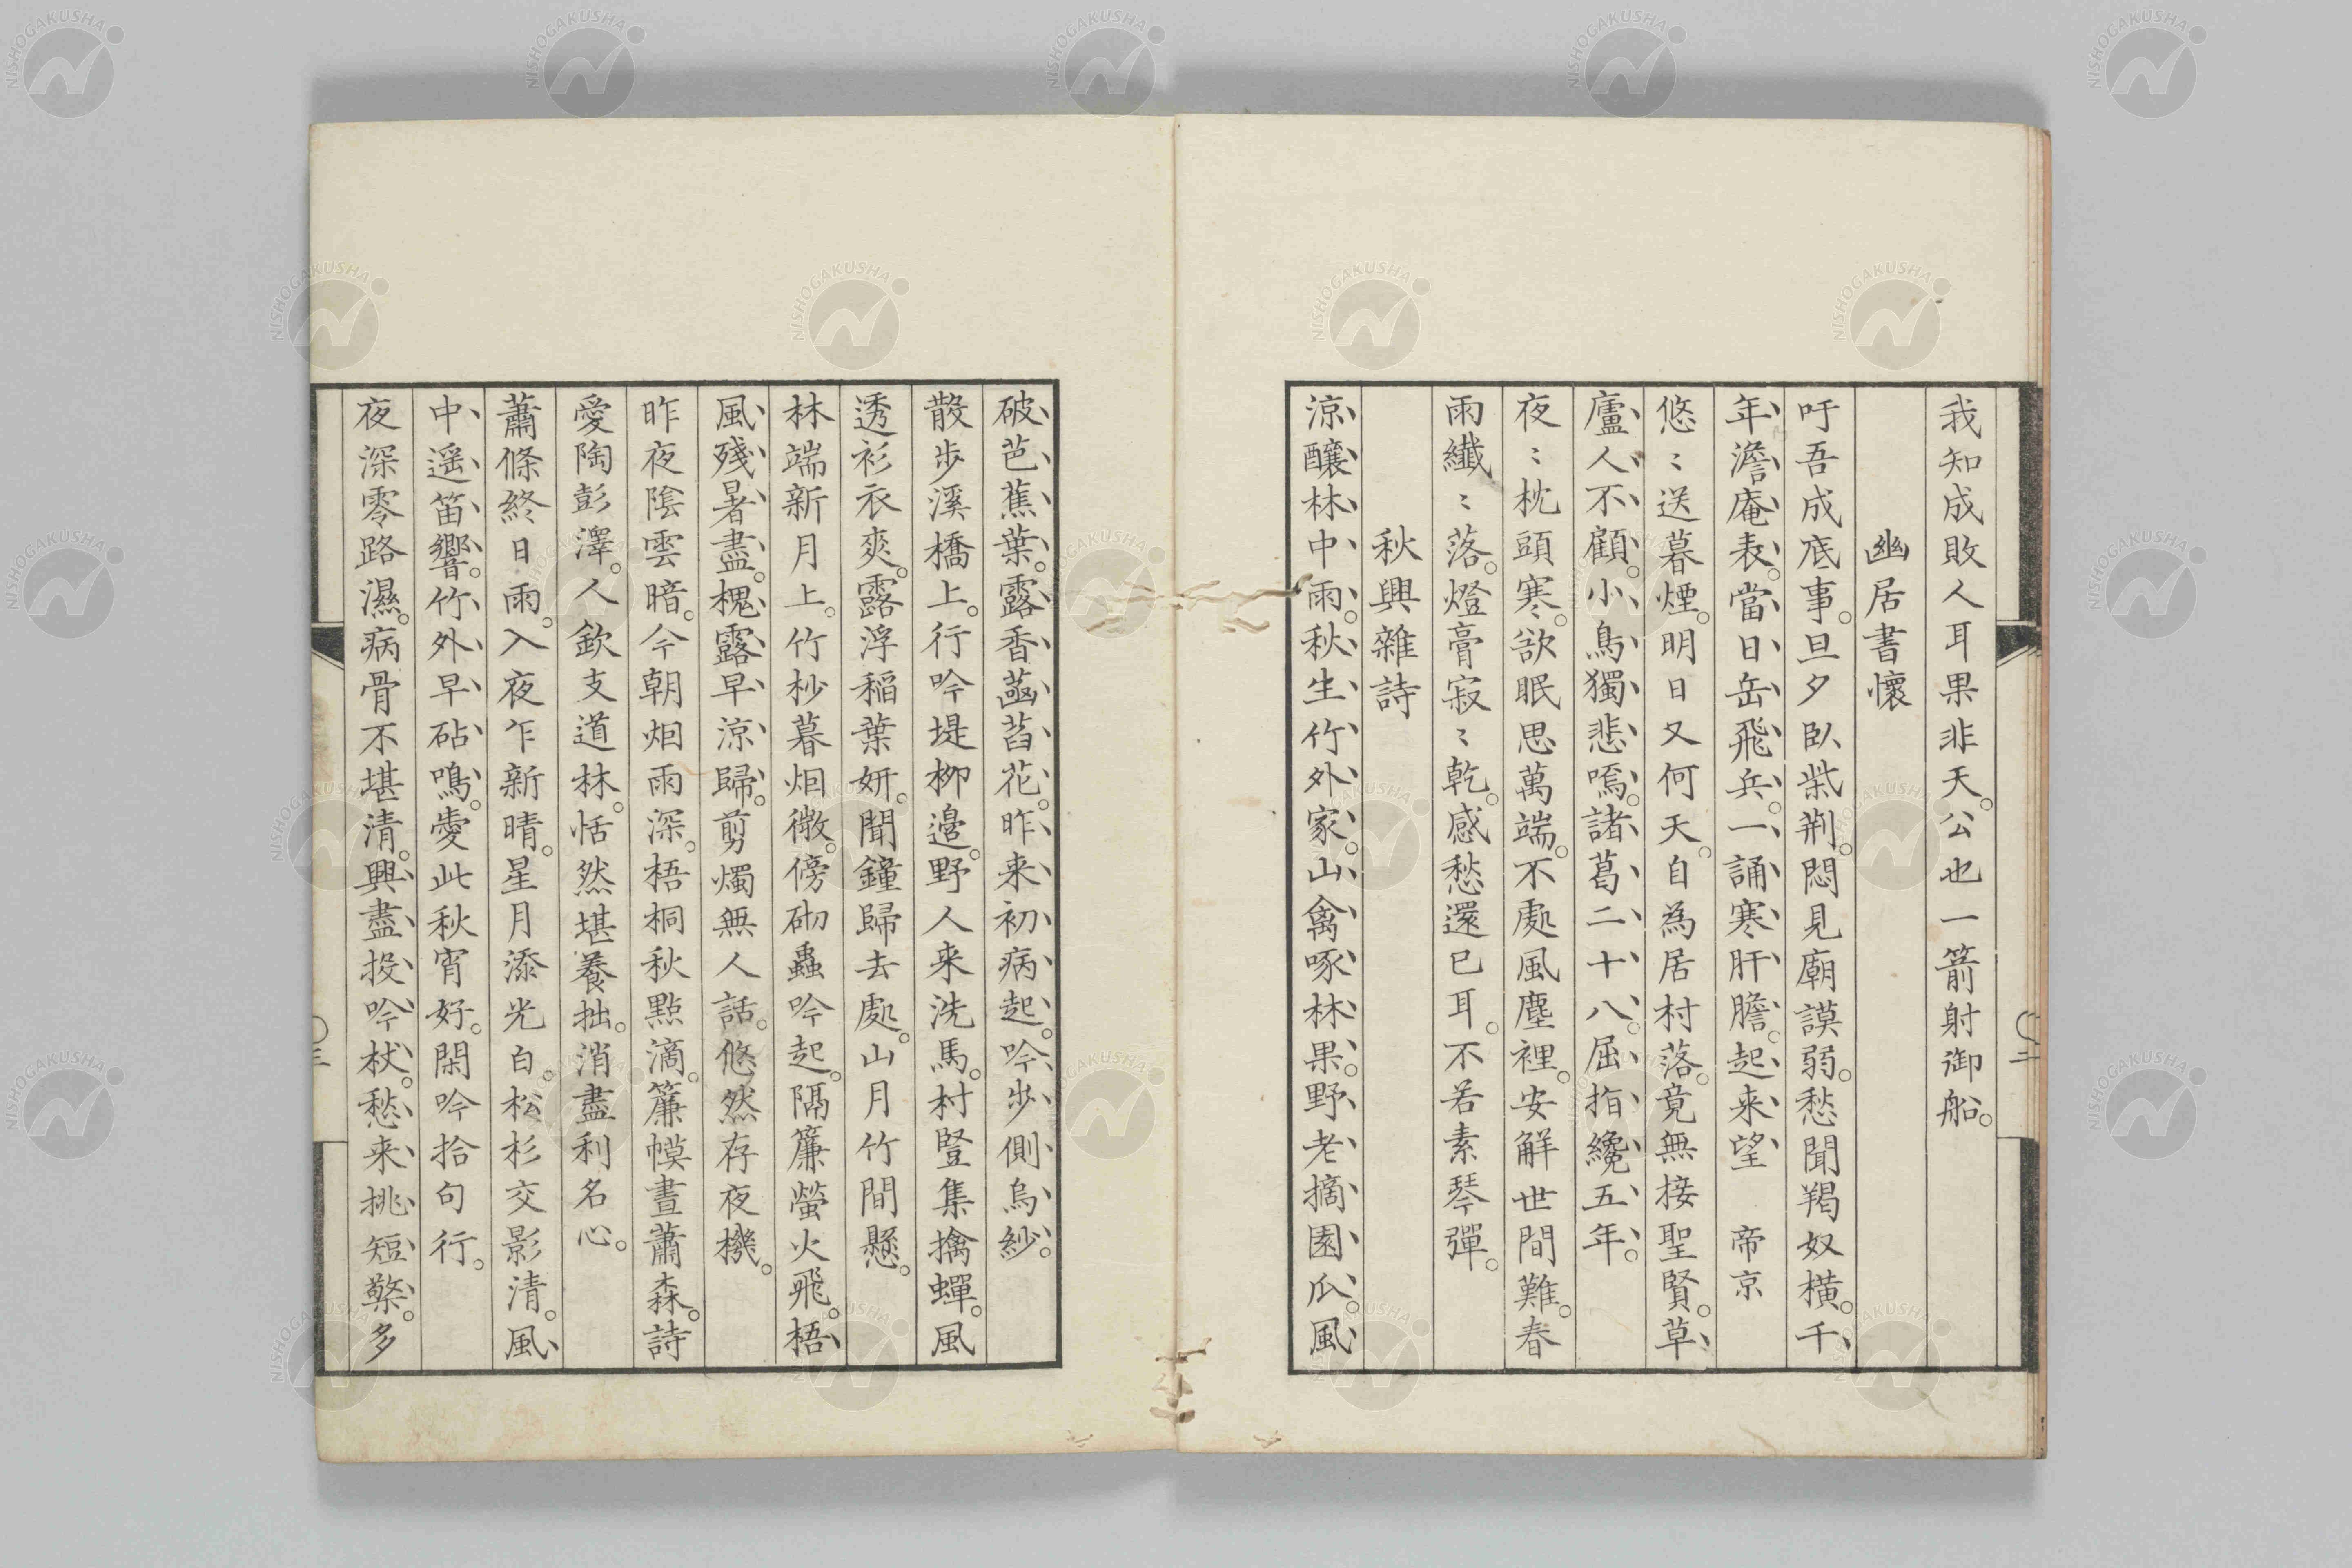 我知成敗人耳果非天。公也一箭射御船。
幽居書懷
吁吾成底事。旦夕臥柴荆。悶見廟謨弱。愁聞羯奴橫。千
年澹庵表。當日岳飛兵。一誦寒肝膽。起来望　帝京
悠〻送暮煙。明日又何天。自為居村落。竟無接聖賢。草
廬人不顧。小鳥獨悲鳴。諸葛二十八。屈指纔五年。
夜〻枕頭寒。欲眠思萬端。不處風塵裡。安解世間難。春
雨纖〻落。燈膏寂〻乾。感愁還已耳。不若素琴彈。
秋興雜詩
涼釀林中雨。秋生竹外家。山禽啄林果。野老摘園瓜。風
破芭蕉葉。露香菡萏花。昨来初病起。吟步側烏紗。
散步溪橋上。行吟堤柳邉。野人来洗馬。村豎集擒蟬。風
透衫衣爽。露浮稲葉妍。聞鐘歸去處。山月竹間懸。
林端新月上。竹杪暮烟微。傍砌蟲吟起。隔簾螢火飛。梧
風殘暑盡。槐露早涼歸。剪燭無人話。悠然存夜機。
昨夜陰雲暗。今朝烟雨深。梧桐秋點滴。簾幙晝蕭森。詩
愛陶彭澤。人欽支道林。恬然堪養拙。消盡利名心。
蕭條終日雨。入夜乍新晴。星月添光白。松杉交影清。風
中遥笛響。竹外早砧鳴。愛此秋宵好。閑吟拾句行。
夜深零路濕。病骨不堪清。興盡投吟杖。愁来挑短檠。多
〇二
〇三
NISHOGAKUSHA